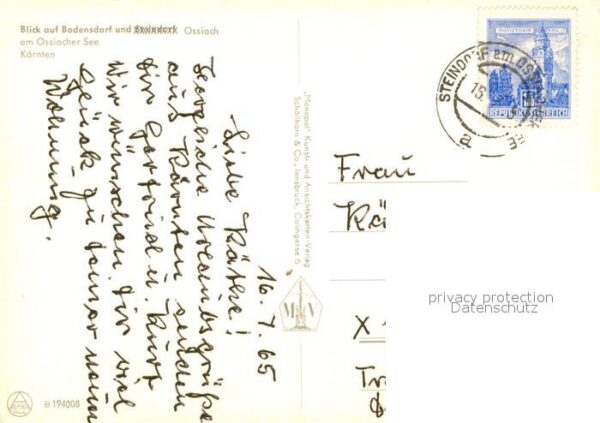 Blick auf Bodensdorf und Steindorf Ossiach
am Ossiacher See
Kärnten
16. 7. 65
Liebe Käthe!
Herzliche Urlaubsgrüße
aus Kärnten senden
dir Gertrud u. Kurt
Wir wünschen dir viel
Glück zu deiner neuen
Wohnung.
B 194008
"Monopol" Kunst- und Ansichtskarten-Verlag
Schöllhorn & Co., Innsbruck, Colingasse 6
M V
STEINDORF am OSSIACHER SEE
a
REPUBLIK ÖSTERREICH
Frau
Kä
X
Tr
privacy protection
Datenschutz